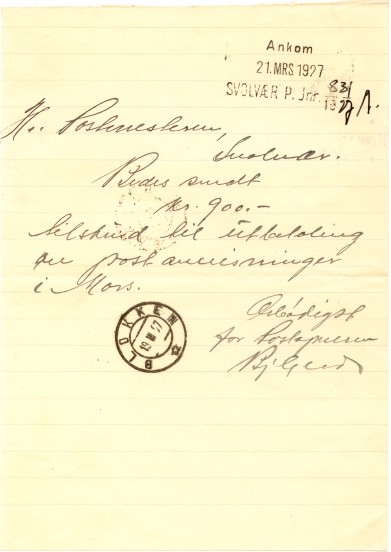 Ankom
21. MRS 1927
SVOLVÆR P. Jnr. 831/1927
Hr. Postmesteren,
Svolvær.
Bedes sendt
kr. 900.-
tilskud til utbetaling
av postanvisninger
i Mars.
Ærbødigst
for Postaapneren
BLOKKEN
19 III 27